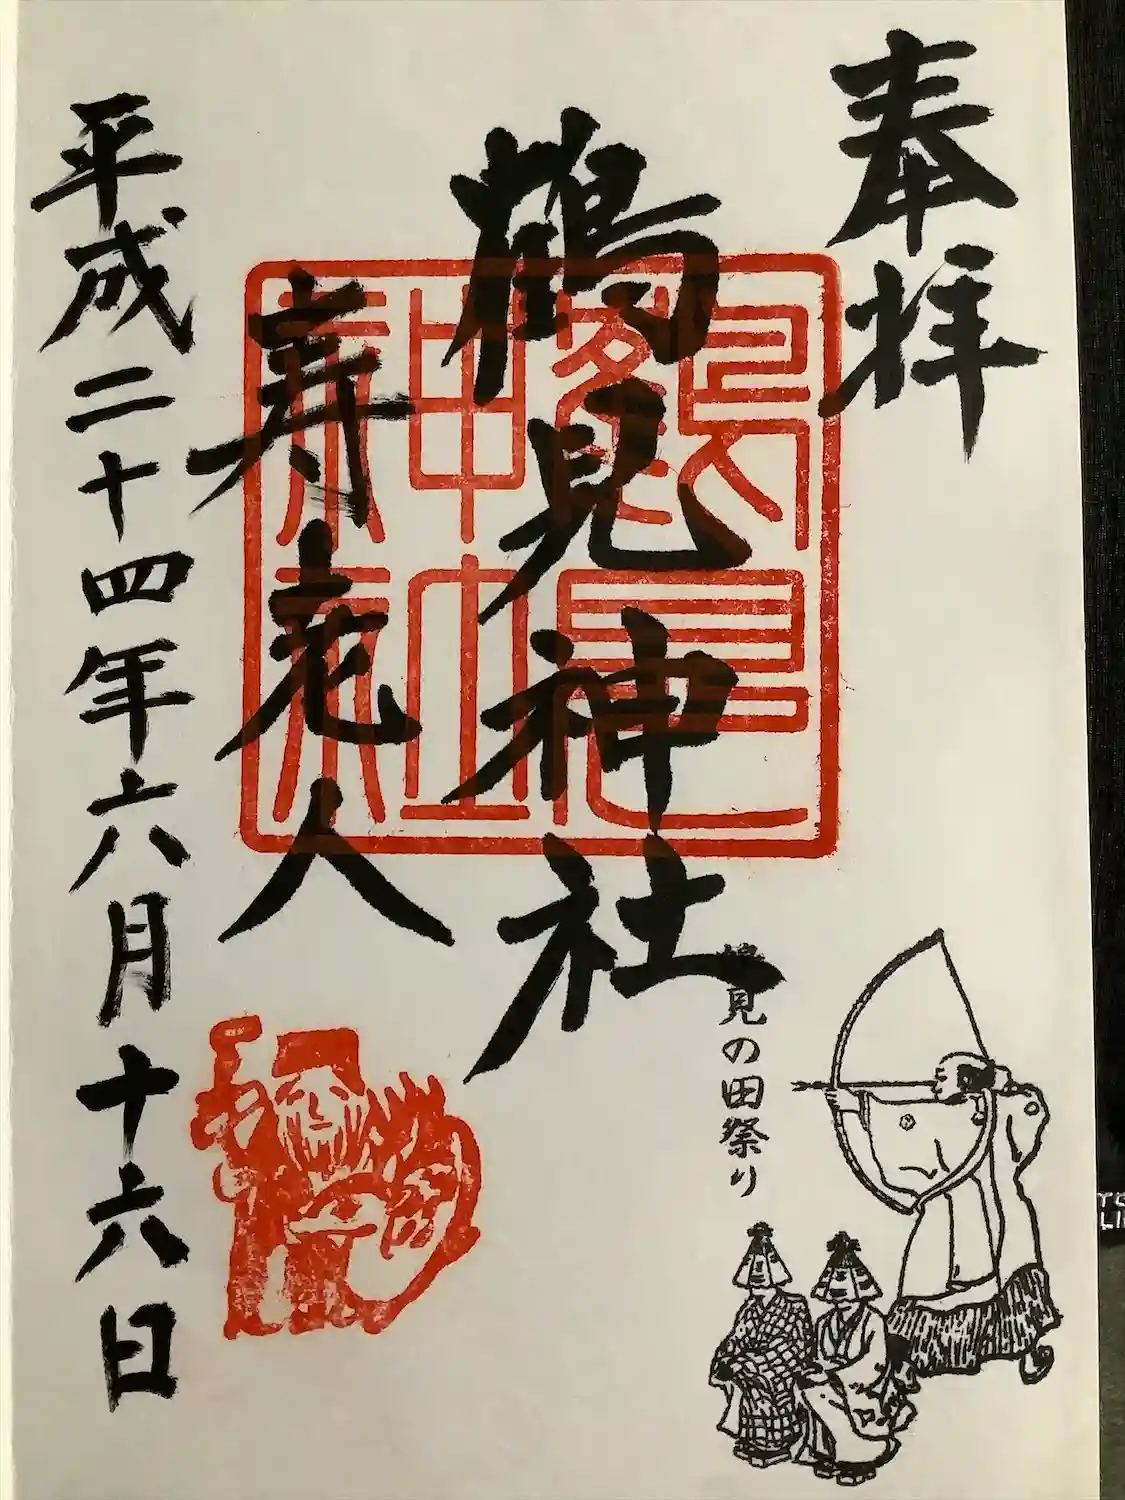 奉拝
鶴見神社
鶴見神社
寿老人
平成二十四年六月十六日
見の田祭り